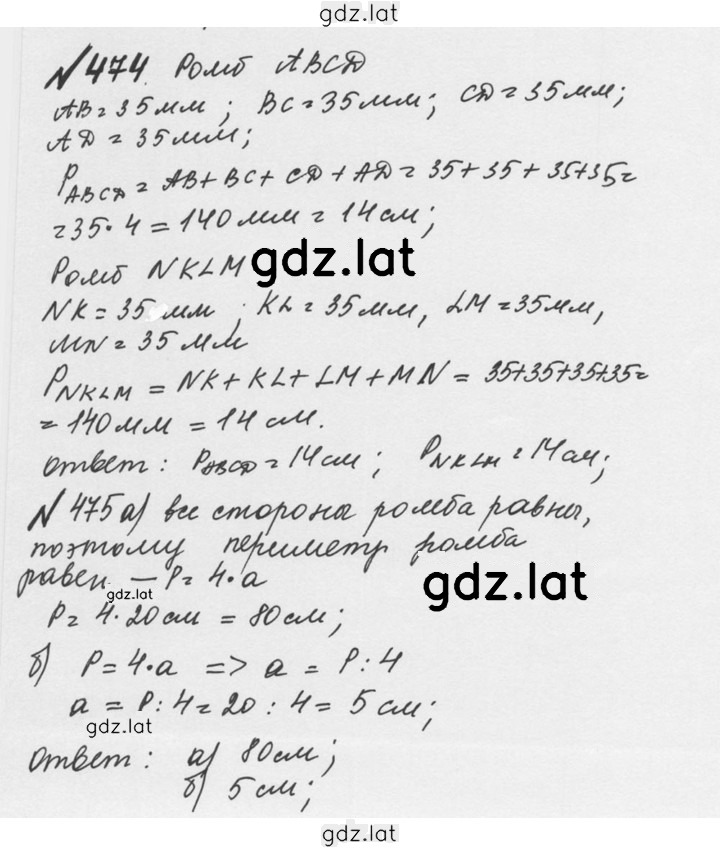 gdz.lat
№474. Ромб ABCD
AB = 35 мм ; BC = 35 мм ; CD = 35 мм;
AD = 35 мм;
P ABCD = AB + BC + CD + AD = 35 + 35 + 35 + 35 =
= 35 · 4 = 140 мм = 14 см;
Ромб NKLM gdz.lat
NK = 35 мм ; KL = 35 мм, LM = 35 мм,
MN = 35 мм
P NKLM = NK + KL + LM + MN = 35+35+35+35 =
= 140 мм = 14 см.
ответ : P ABCD = 14 см ; P NKLM = 14 см;
№475 а) все стороны ромба равны,
поэтому периметр ромба
равен — P = 4 · a
gdz.lat
gdz.lat
P = 4 · 20 см = 80 см ;
б) P = 4 · a => a = P : 4
a = P : 4 = 20 : 4 = 5 см ;
gdz.lat
ответ : а) 80 см ;
б) 5 см ;
gdz.lat